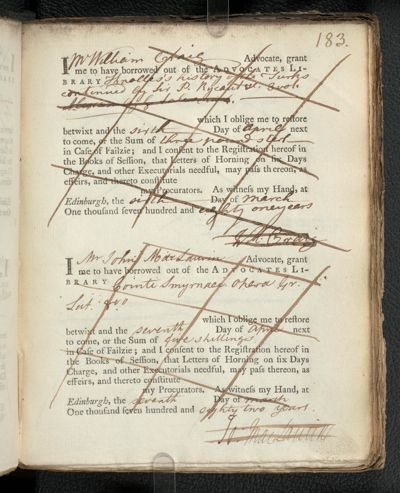 183.
I Mr William Craig Advocate, grant
me to have borrowed out of the ADVOCATES LI-
BRARY Knolles's history of the Turks
continued by Sir P. Rycaut 2 vols
which I oblige me to restore
betwixt and the sixth Day of April next
to come, or the Sum of three pounds
in Case of Failzie; and I consent to the Registration hereof in
the Books of Session, that Letters of Horning on six Days
Charge, and other Executorials needful, may pass thereon, as
effeirs, and thereto constitute
my Procurators. As witness my Hand, at
Edinburgh, the sixth Day of March
One thousand seven hundred and eighty one years
W. Craig
I Mr John MacLaurin Advocate, grant
me to have borrowed out of the ADVOCATES LI-
BRARY Quinti Smyrnaei Opera Gr.
Lat. 8vo
which I oblige me to restore
betwixt and the seventh Day of April next
to come, or the Sum of five shillings
in Case of Failzie; and I consent to the Registration hereof in
the Books of Session, that Letters of Horning on six Days
Charge, and other Executorials needful, may pass thereon, as
effeirs, and thereto constitute
my Procurators. As witness my Hand, at
Edinburgh, the seventh Day of March
One thousand seven hundred and eighty two years.
Jo. MacLaurin